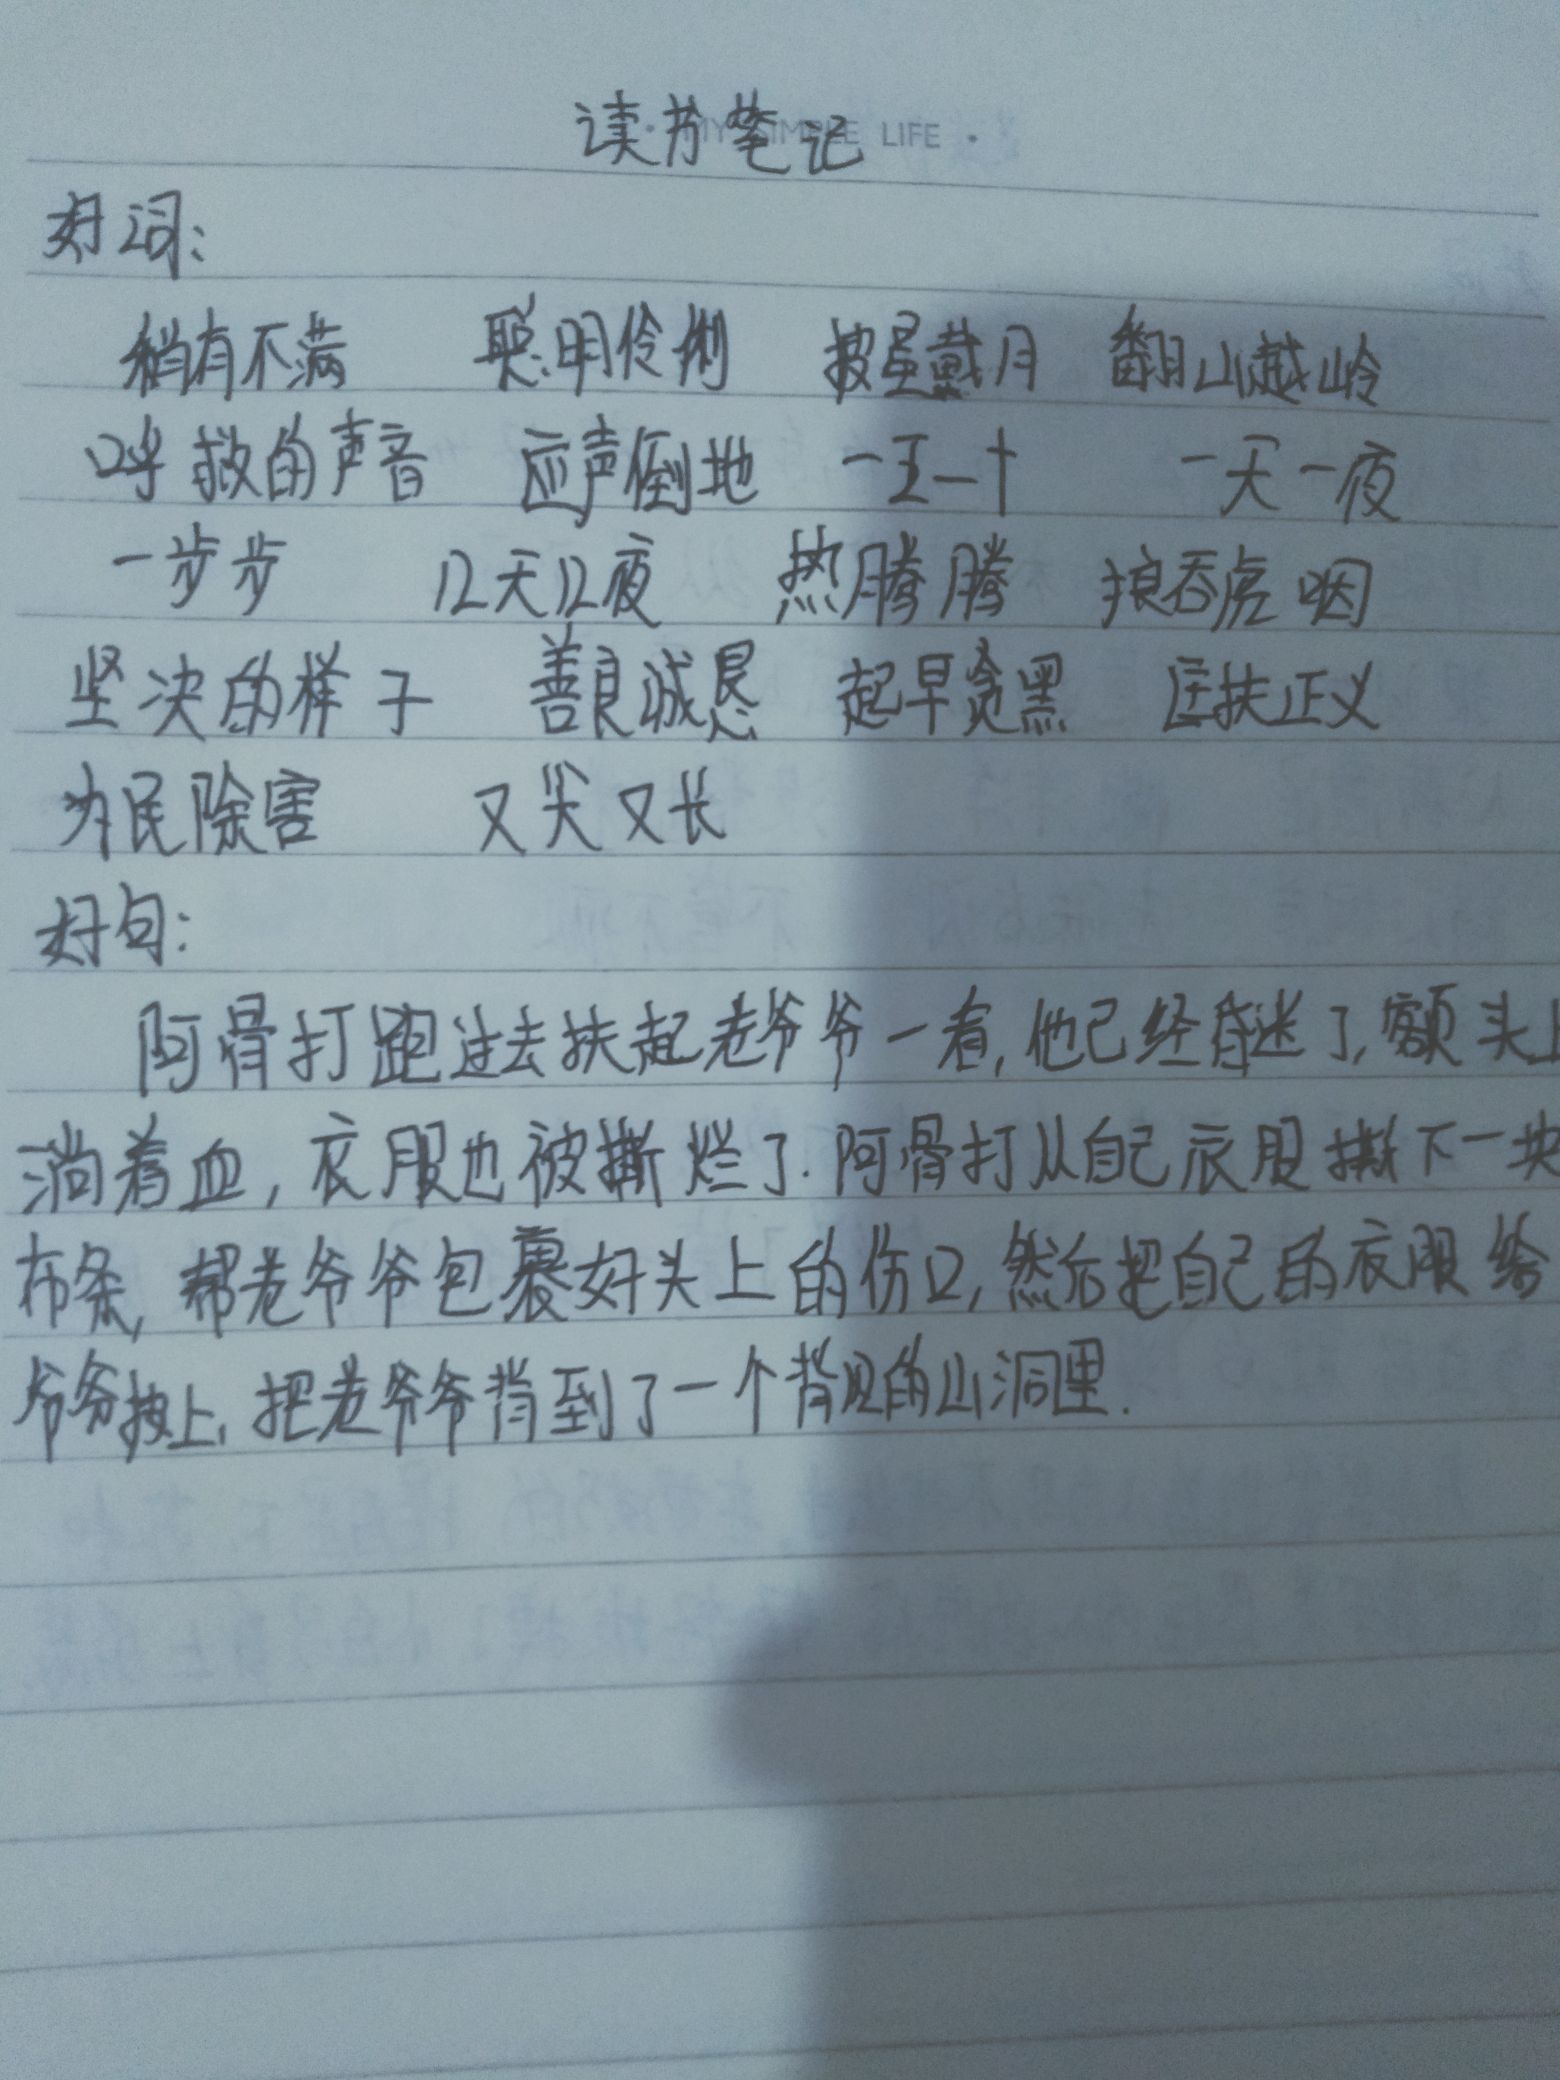 读书笔记
MY SIMPLE LIFE
好词:
稍有不满 聪明伶俐 披星戴月 翻山越岭
呼救的声音 应声倒地 一五一十 一天一夜
一步步 几天几夜 热腾腾 狼吞虎咽
坚决的样子 善良诚恳 起早贪黑 匡扶正义
为民除害 又尖又长
好句:
阿骨打跑过去扶起老爷爷一看,他已经昏迷了,额头上
淌着血,衣服也被撕烂了.阿骨打从自己衣服撕下一块
布条,帮老爷爷包裹好头上的伤口,然后把自己的衣服给
爷爷披上,把老爷爷背到了一个背风的山洞里.